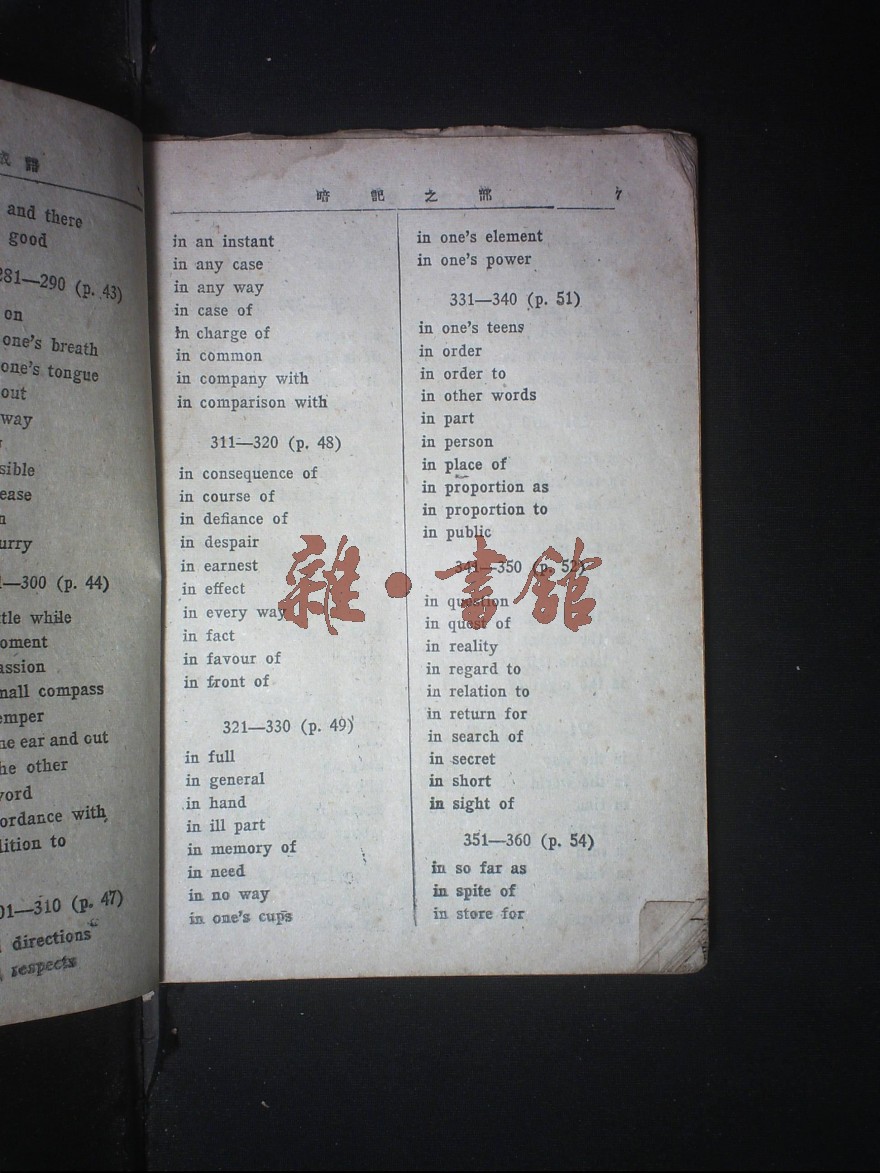 成語
and there
good
281—290 (p. 43)
on
one's breath
one's tongue
out
way
sible
ease
urry
—300 (p. 44)
ttle while
oment
assion
mall compass
emper
ne ear and out
he other
vord
ordance with
lition to
01—310 (p. 47)
directions
respects
暗記之部 7
in an instant
in any case
in any way
in case of
in charge of
in common
in company with
in comparison with
311—320 (p. 48)
in consequence of
in course of
in defiance of
in despair
in earnest
in effect
in every way
in fact
in favour of
in front of
321—330 (p. 49)
in full
in general
in hand
in ill part
in memory of
in need
in no way
in one's cups
in one's element
in one's power
331—340 (p. 51)
in one's teens
in order
in order to
in other words
in part
in person
in place of
in proportion as
in proportion to
in public
341—350 (p. 52)
in question
in quest of
in reality
in regard to
in relation to
in return for
in search of
in secret
in short
in sight of
351—360 (p. 54)
in so far as
in spite of
in store for
雜·書館